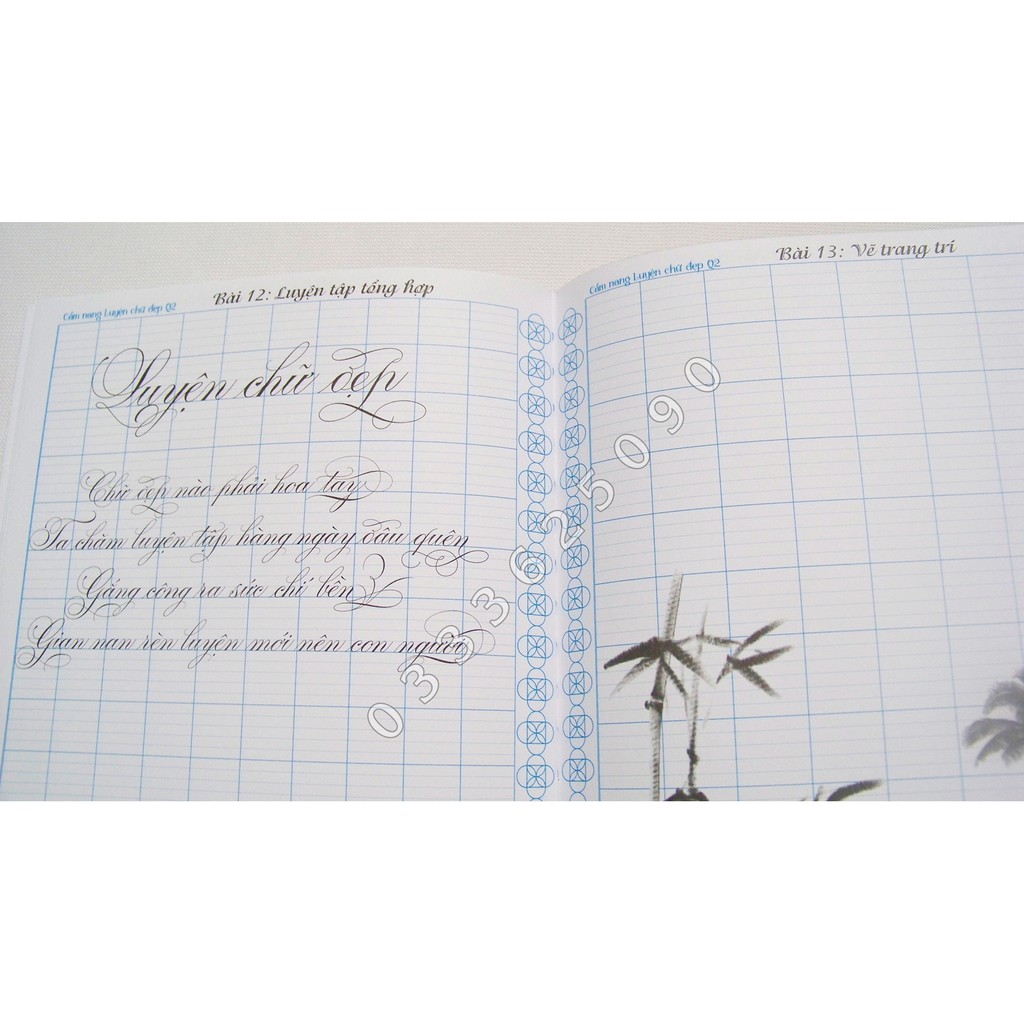 Cẩm nang Luyện chữ đẹp Q2
Bài 12: Luyện tập tổng hợp
Luyện chữ đẹp
Chữ đẹp nào phải hoa tay
Ta chăm luyện tập hàng ngày đâu quên
Gắng công ra sức chí bền
Gian nan rèn luyện mới nên con người
Cẩm nang Luyện chữ đẹp Q2
Bài 13: Vẽ trang trí
0336625090